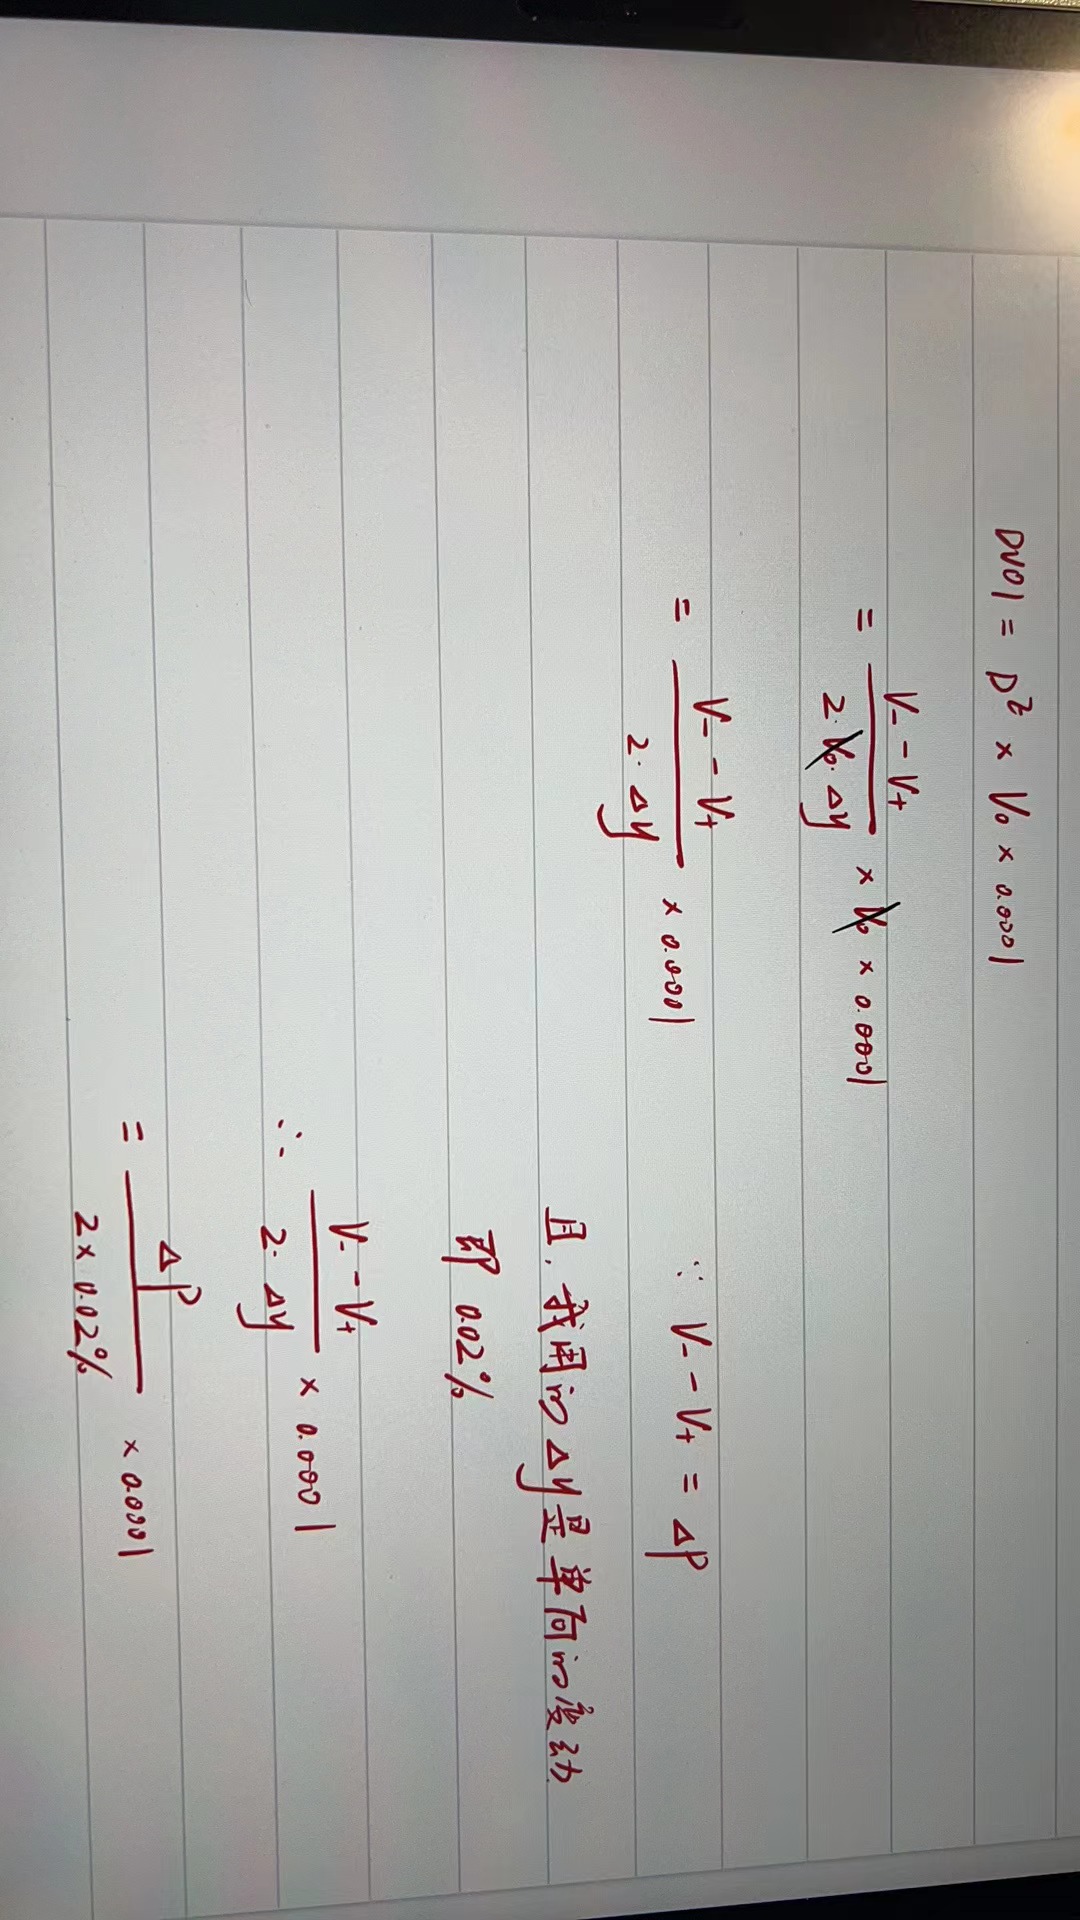 DV01 = D² × V₀ × 0.0001
= (V₋ - V₊) / (2·V₀·Δy) × V₀ × 0.0001
= (V₋ - V₊) / (2·Δy) × 0.0001
∵ V₋ - V₊ = ΔP
且, 我用的Δy是单向的变动
即 0.02%
∴ (V₋ - V₊) / (2·Δy) × 0.0001
= ΔP / (2×0.02%) × 0.0001